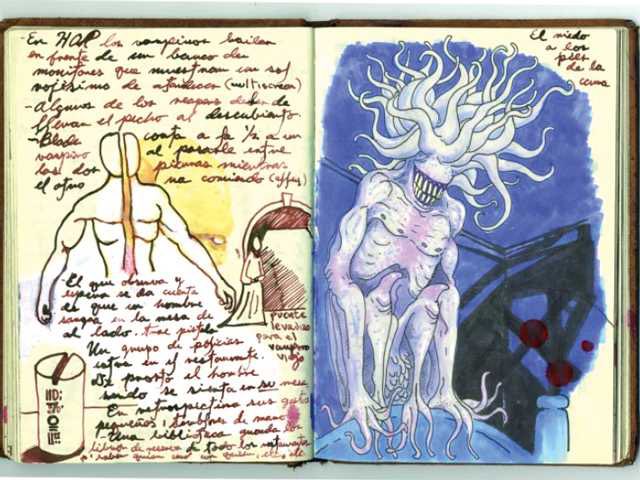 -En HOP los vampiros bailan
en frente de un banco de
monitores que muestran un sol
de (multiscreen)
-Algunos de los reapers deben de
llevar el pecho al descubierto.
-Blade corta a la 1/2 a un
vampiro al pasarle entre
las dos piernas mientras
el otro va corriendo (effex)
-El que observa y
espera se da cuenta
de que un hombre
sangra en la mesa de
al lado. trae pistola
Un grupo de policías
entra en el restaurante.
De pronto el hombre
se sienta en su mesa
En retrospectiva sus
pequeños temblores de mano
-Una biblioteca guarda los
libros de reserva de todos los restaurantes
puente
levadizo
para el
vampiro
viejo
El miedo
a los
pies
de la
cama